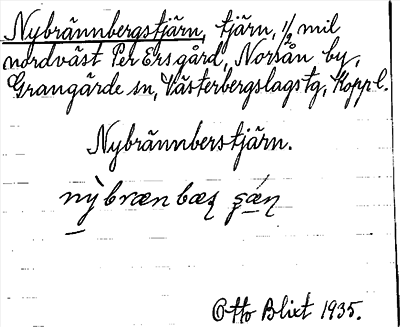 Nybrännbergstjärn, tjärn, 1/2 mil
nordväst Per Ersgård, Norsån by,
Grangärde sn, Västerbergslags tg, Kopp l.
Nybrännberstjärn.
Otto Blixt 1935.